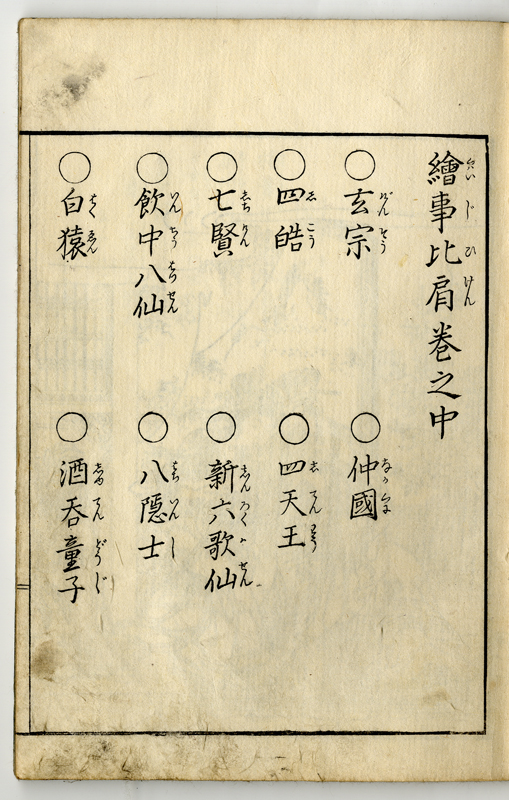 繪事比肩卷之中
○玄宗
○仲國
○四皓
○四天王
○七賢
○新六歌仙
○飲中八仙
○八隱士
○白猿
○酒呑童子